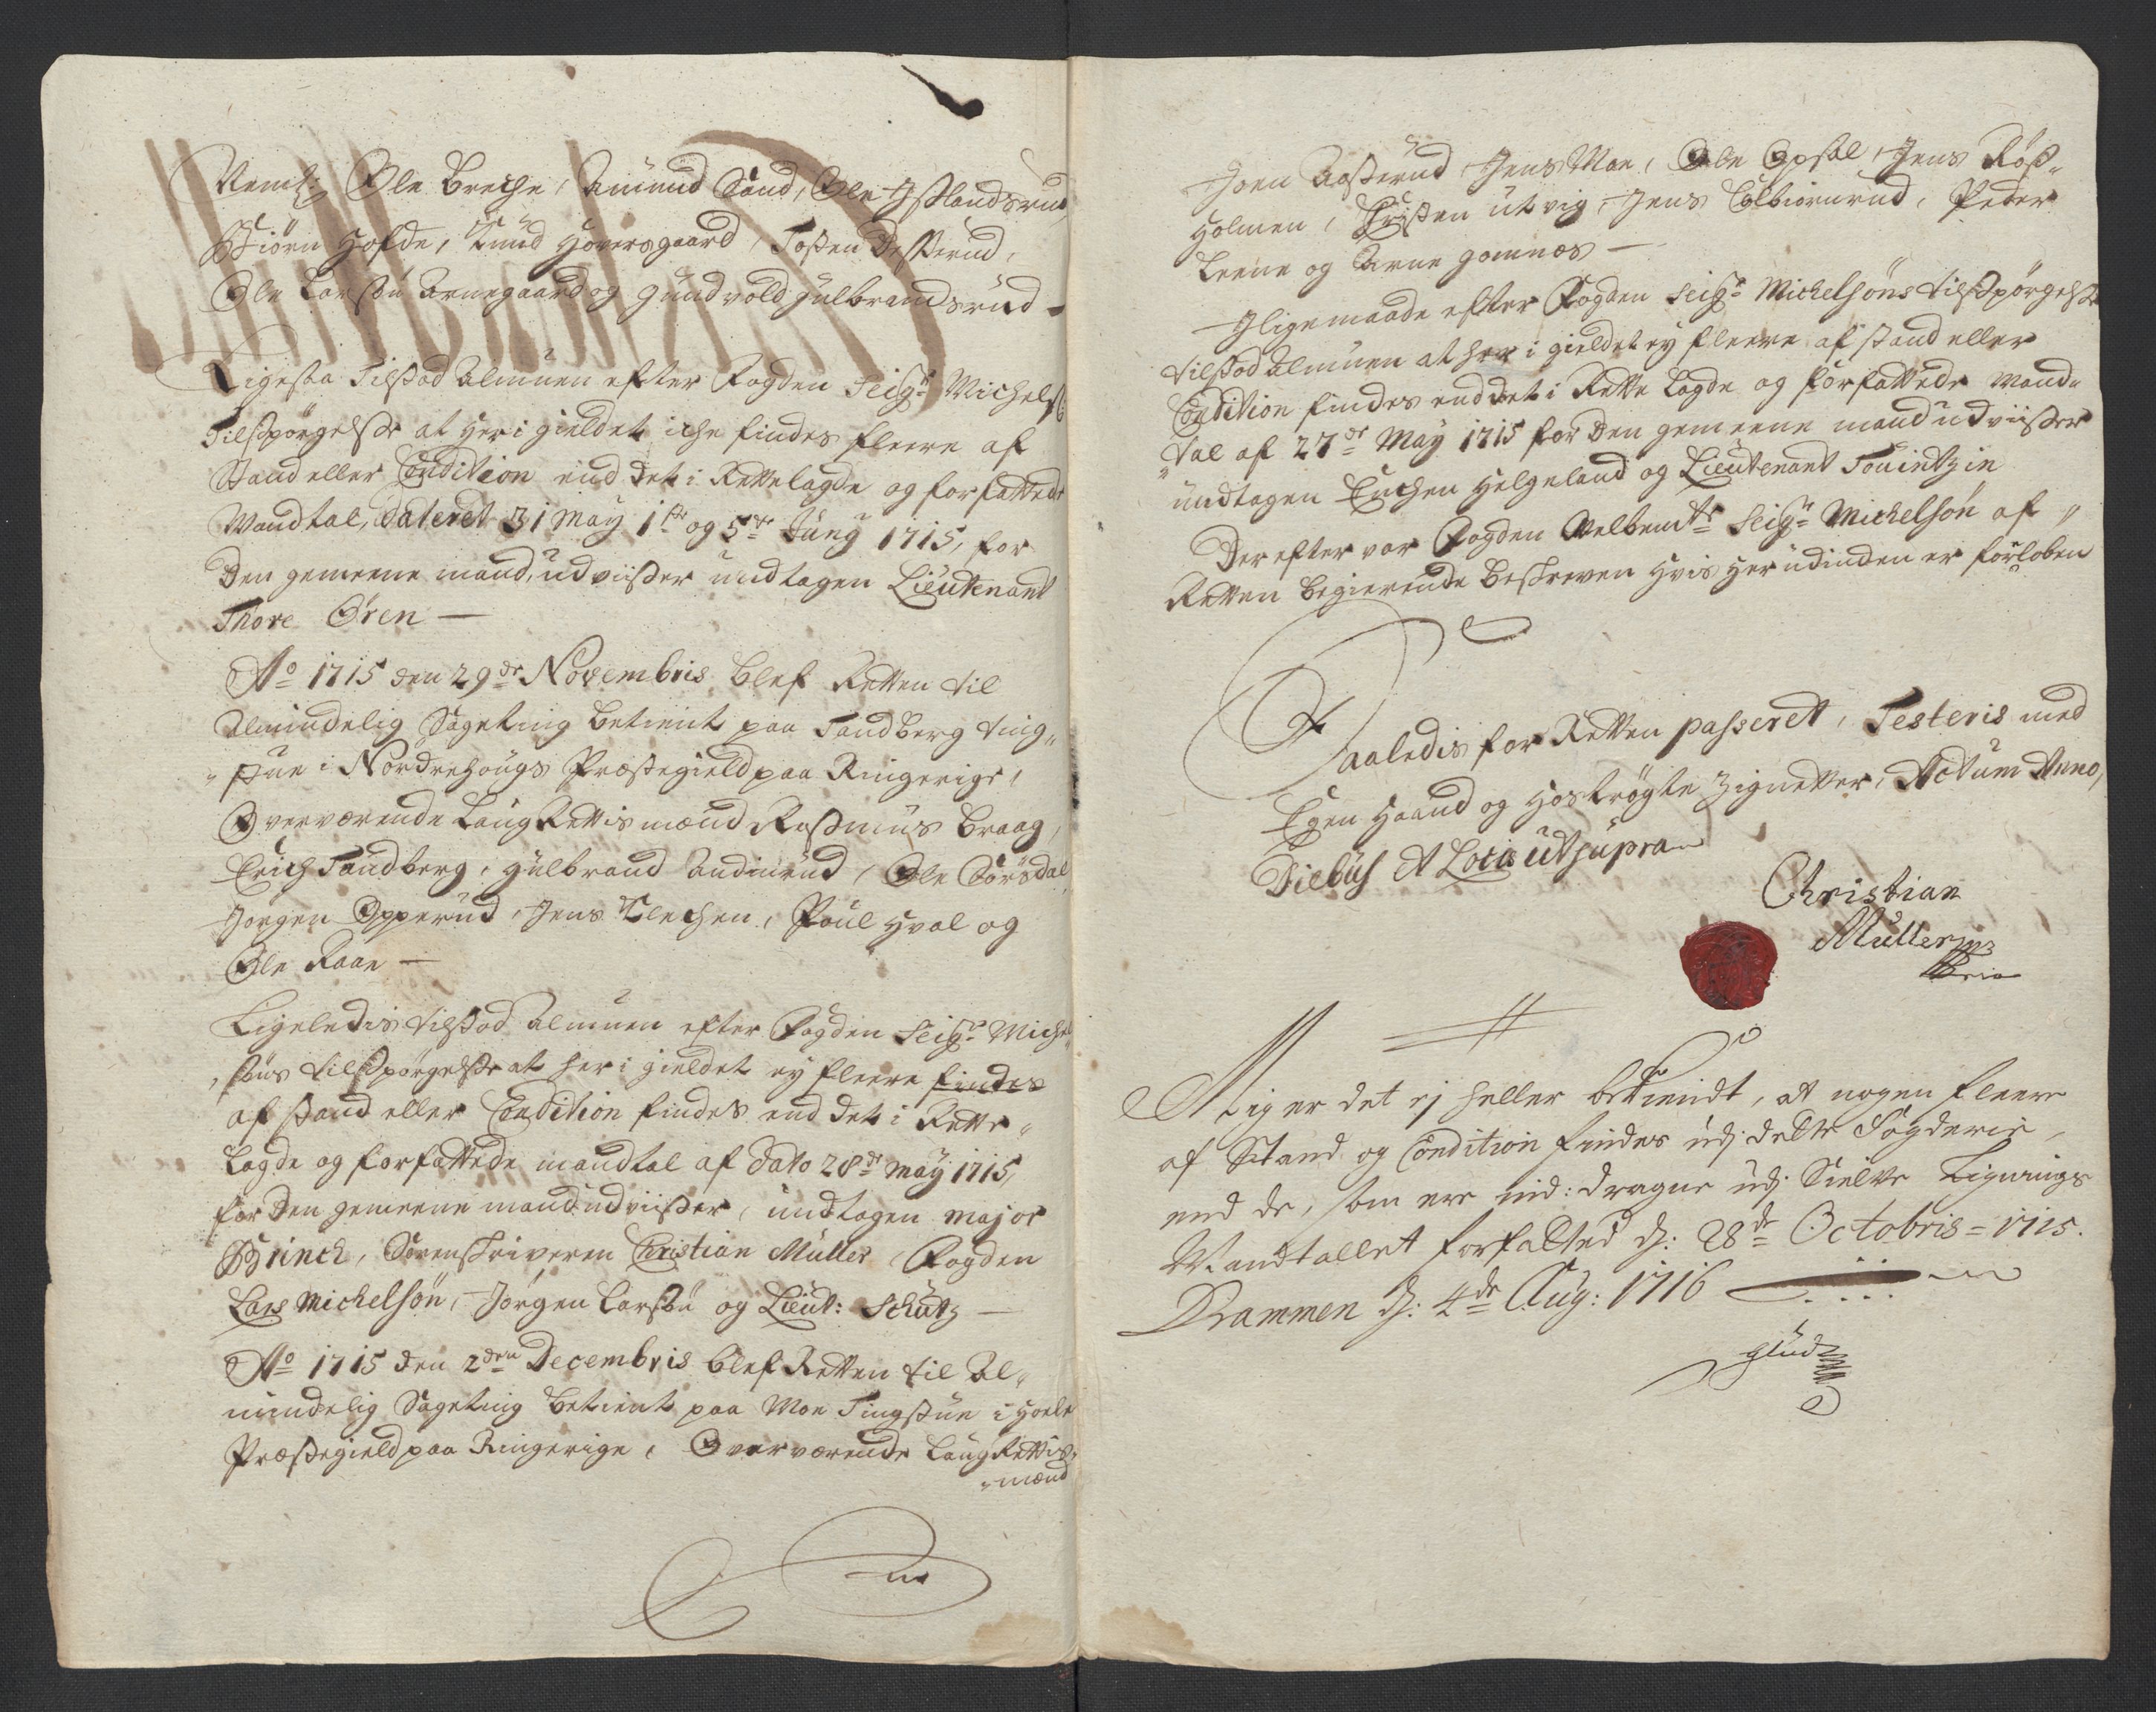 Neml: Ole Breche, Amund Sand, Ole Islandsrud,
Biörn Hofde, Knud Hoversgaard, Tosten Desserud,
Ole Larssen Arnegaard og Gundvold Gulbrandsrud -
Ligesaa Tilstod Almuen efter Fogden Seigr Michels:
Tilspörgelse at her i gieldet iche findes fleere af
Stand eller Condition end det i Rettelagde og forfattede
Mandtal, Dateret 31 May 1ste og 5te Juny 1715, for
Den gemeene mand, udviiser undtagen Lieutenant
Thore Ören —
Ao 1715 den 29de Novembris blef Retten til
Almindelig Sageting betient paa Tandberg ting„
„stue i Nordrehougs Præstegield paa Ringerige,
Overværende Laug Rettis mænd Rasmus Braag,
Erich Tandberg, Gulbrand Andinrud, Ole Sörsdal,
Jörgen Opperud, Jens Klechen, Poul Hval og
Ole Raae —
Ligeledis tilstod Almuen efter Fogden Seigr Michel„
„söns tilspörgelse at her i gieldet ey fleere findes
af stand eller Condition findes end det i Rette„
lagde og forfattede mandtal af dato 28de May 1715,
for Den gemeene mand udviiser, undtagen Major
Brinch, Sorenskriveren Christian Müller, Fogden
Lars Michelsön, Jörgen Larssön og Lieut: Schütz —
Ao 1715 den 2den Decembris blef Retten til Al„
mindelig Sageting betient paa Moe Tingstue i Hoele
Præstegield paa Ringerige, Overværende Laug Rettis„
„mænd
Joen Aasserud, Jens Moe, Ole Opsal, Jens Rös„
Holmen, Christen Utvig, Jens Colbiörnrud, Peder
Leene og Arne Gomnæs —
Iligemaade efter Fogden Seigr Michelsöns tilspörgelse
tilstod Almuen at her i gieldet ey fleere af stand eller
Condition findes end det i Rette lagde og forfattede Mand„
„tal af 27de May 1715 for den gemeene mand udviiser
undtagen Enchen Helgeland og Lieutenant
Der efter var Fogden Velbemte Seigr Michelsön af„
Retten begierende beskreven hvis her udinden er forloben
Saaledis for Retten passeret, Testeris med
Egen Haand og hoströgte Zignetter, Actum Anno,
Diebus et Locis ut supra
Christian
Müller
Mig er det ej heller bekiendt, at nogen fleere
af Stand og Condition findes udj dette Fogderie,
end de, som ere ind: dragne udj Sielve Lignings
Mandtallet forfatted d: 28de Octobris = 1715.
Brammen d: 4de Aug: 1716
Glud